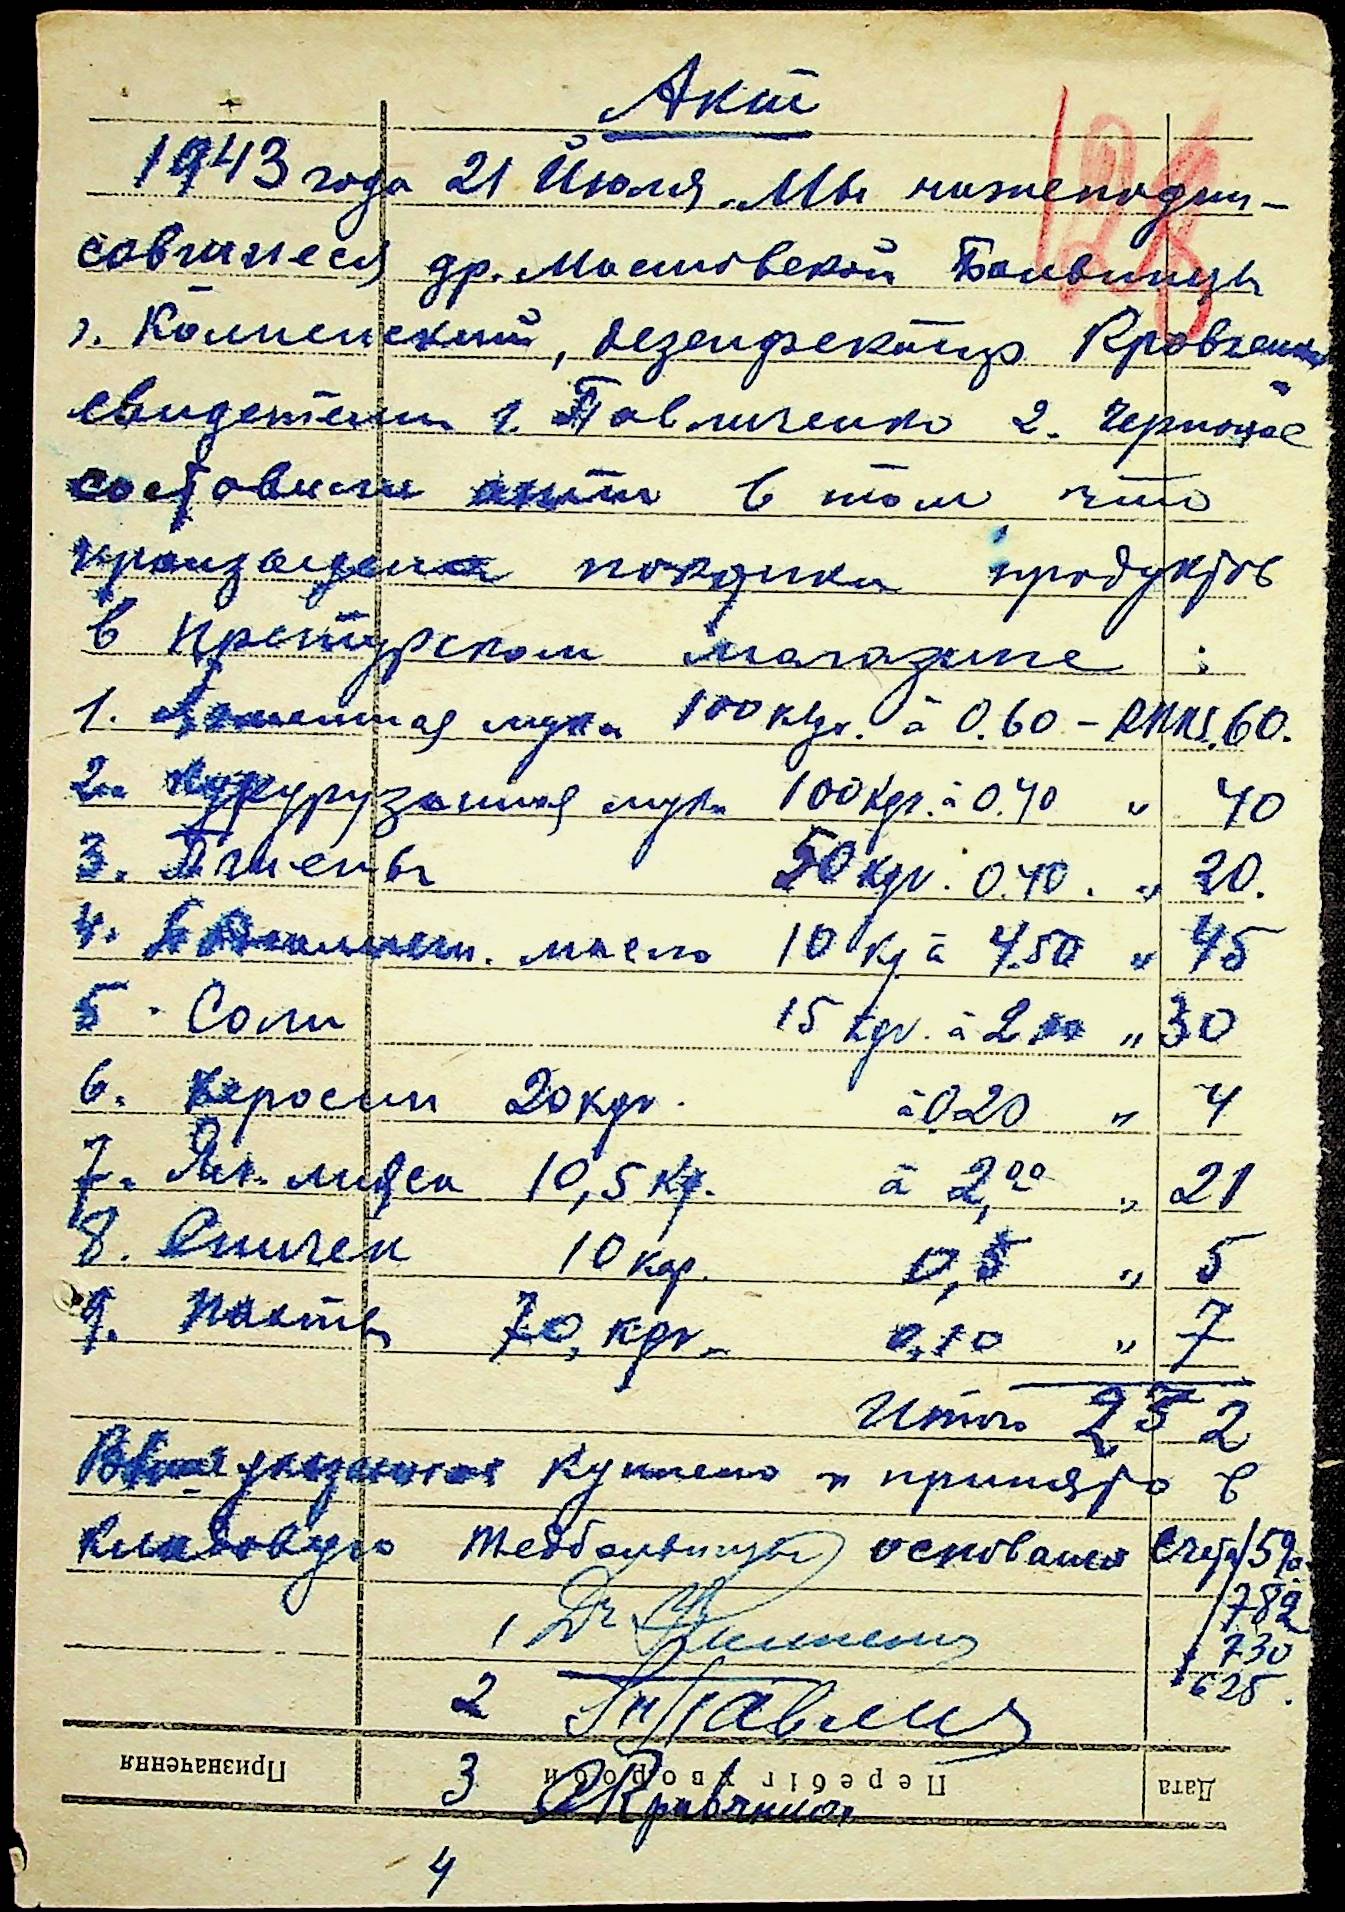 Акт
128
1943 года 21 Июля. Мы нижеподпи-
савшиеся др. Мостовской Больницы
г. дезенфектор Кравченко
свидетели 1. Павличенко 2.
составили акт в том что
произведена покупка продуктов
в Претурском магазине :
1. мука 100 кгр. à 0.60 – RMK. 60.
2. Кукурузанная мука 100 кgr. à 0.40 " 40
3. Пшены 50 кgr. 0.40. " 20.
4. масло 10 кg à 4.50 " 45
5. Соли 15 кgr. à 2 " 30
6. Керосин 20 кgr. à 0.20 " 4
7. мяса 10,5 кg. à 2,00 " 21
8. Спичек 10 кор. 0,5 " 5
9. 70, кgr. 0,10 " 7
Итого 252
Выше указанное куплено и принято в
кладовую основании счета 1590.
782
730
625.
1 Dr
2
3 Кравченко
4
Призначення Перебіг хвороби Дата